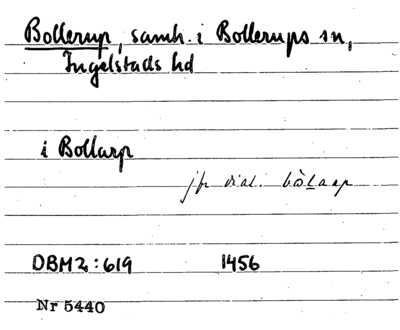 Bollerup, samh. i Bollerups sn,
Ingelstads hd
i Bollarp
jfr dial. bòlarp
DBM 2:619 1456
Nr 5440